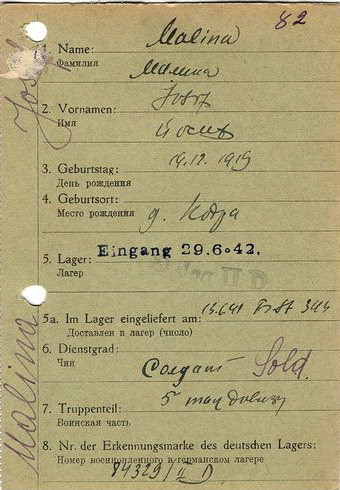 82
Malina
1. Name:
Фамилия
Малина
Josef
2. Vornamen:
Имя
Йосиф
14.12.1919
3. Geburtstag:
День рождения
4. Geburtsort:
Место рождения
д.
5. Lager:
Лагер
Eingang 29.6.42.
5a. Im Lager eingeliefert am:
Доставлен в лагер (число)
344
6. Dienstgrad:
Чин
Солдат Sold.
7. Truppenteil:
Воинская часть
5
8. Nr. der Erkennungsmarke des deutschen Lagers:
Номер военнопленного в германском лагере
Josef
Malina